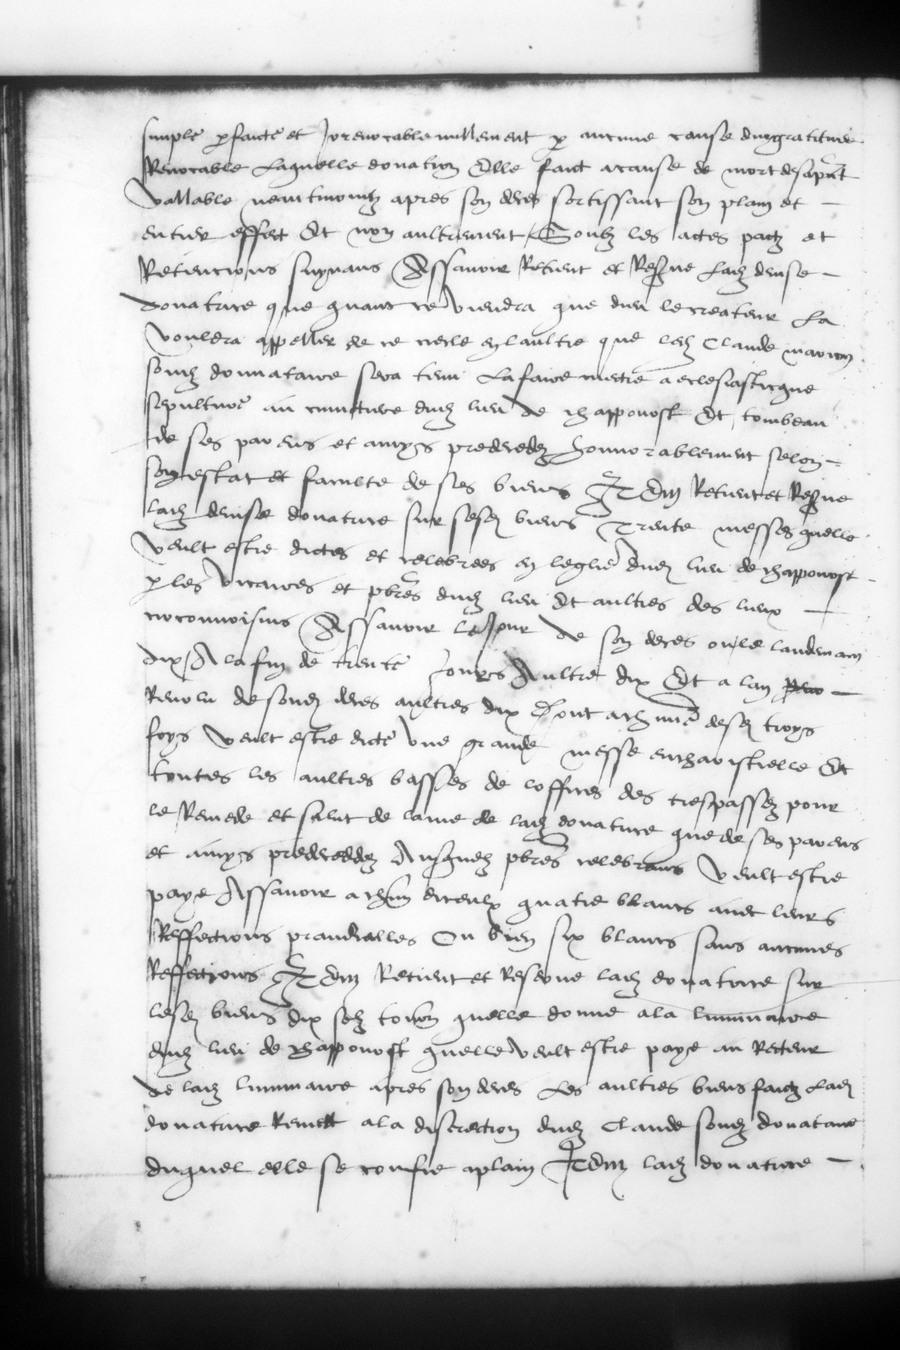 simple pfaicte et Jrrevocable nullement p aucune cause dingratitude
Revocable Laquelle donation Elle faict a cause de mort des apnt
Vallable neantmointz apres son deces sortissant son plain et
entier effect Et non aultrement Soubz les actes pactz et
Retencions suyvans Assavoir Retient et Resve Ladz Denise
donatrice que quant ce Viendra que dieu le createur La
vouldra appeller de ce siecle en laultre que ledz Claude
sondz donnataire sera tenu La faire mectre a ecclesiasticque
sepulture au cimitiere dudz lieu de chapponost Et tombeau
de ses parens et amys predecedez honnorablement selon
son estat et faculte de ses biens Jtem Retient et Resve
ladz denise donatrice sur sesdz biens Trente messes quelle
veult estre dictes et celebrees en leglise dudz lieu de chapponost
p les vicaires et pbres dudz lieu Et aultres des lieux
circonvoisins Assavoir le Jour de son deces ou le landemain
dix A la fin de trente Jours Aultre dix Et a lan
Revolu de sondz deces aultres dix Dont a chune desdz troys
foys Veult estre dicte Une grande messe
toutes les aultres basses de loffices des trespassez pour
le Remede et salut de lame de ladz donatrice que de ses parens
et amys predecedez Ausquelz pbres celebrans Veult estre
paye Assavoir a chun diceulx quatre blancs avec leurs
Reffections prandialles Ou bien six blancs sans aucunes
Reffections Jtem Retient et Reserve ladz donatrice sur
lesdz biens dix solz tour quelle donne a la luminaire
dudz lieu de chapponost quelle veult estre paye au Recteur
de ladz luminaire apres son deces Les aultres biens faictz Ladz
donatrice Remect a la discrection dudz Claude sondz donataire
duquel elle se confie a plain Jtem ladz donatrice